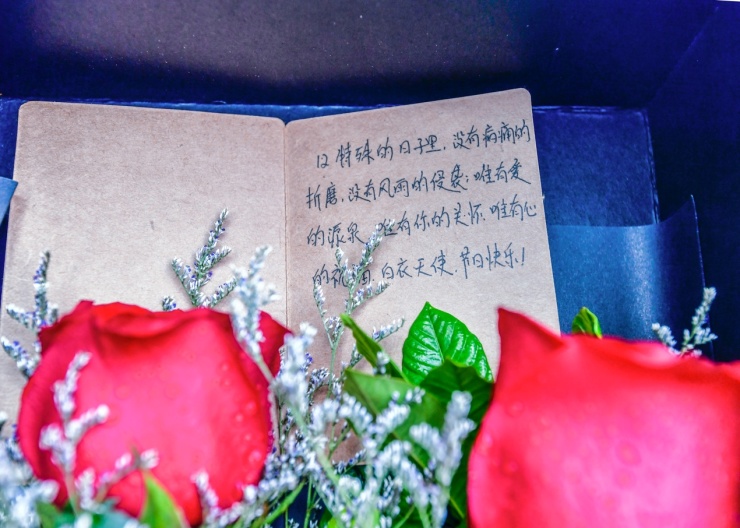 特殊的日子里，没有病痛的
折磨，没有风雨的侵袭；唯有爱
的源泉，唯有你的关怀，唯有心
的祝 白衣天使，节日快乐！